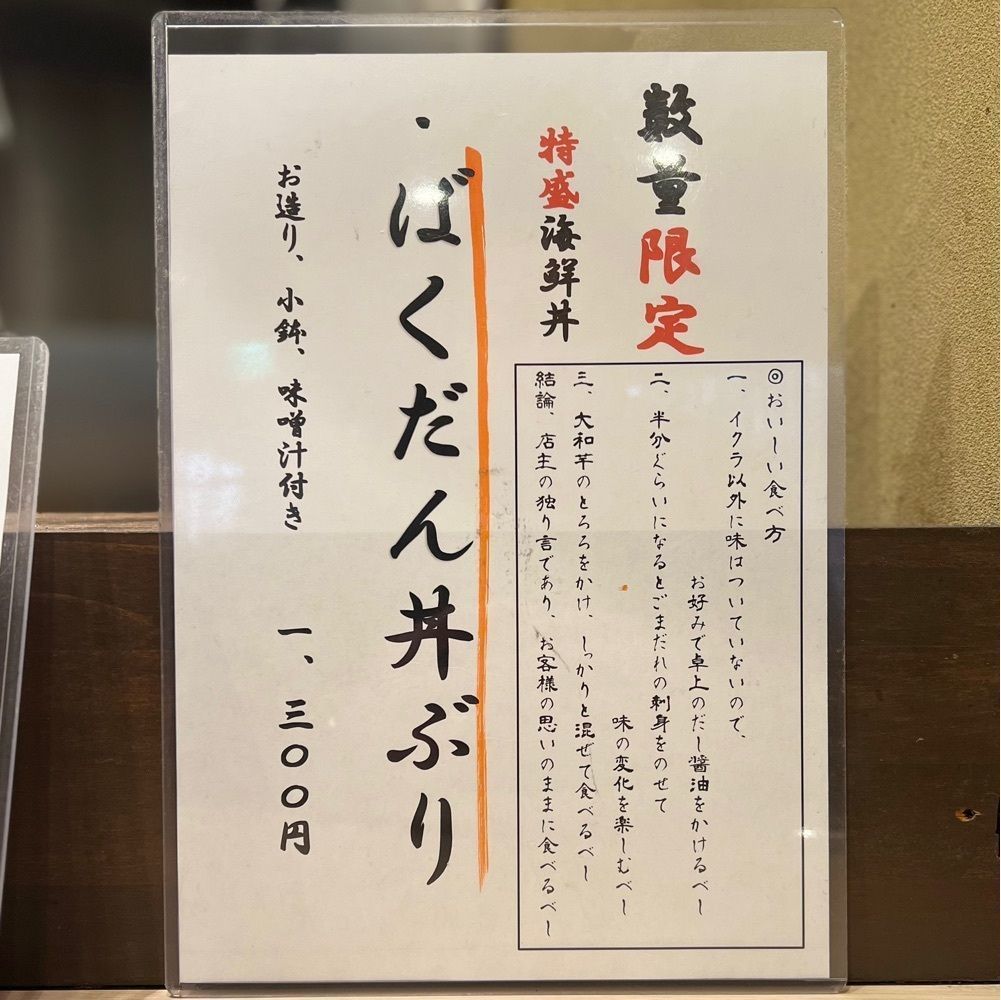 数量限定
特盛海鮮丼
◎おいしい食べ方
一、イクラ以外に味はついていないので、
お好みで卓上のだし醤油をかけるべし
二、半分ぐらいになるとごまだれの刺身をのせて
味の変化を楽しむべし
三、大和芋のとろろをかけ、しっかりと混ぜて食べるべし
結論、店主の独り言であり、お客様の思いのままに食べるべし
・ばくだん丼ぶり
お造り、小鉢、味噌汁付き 一、三〇〇円